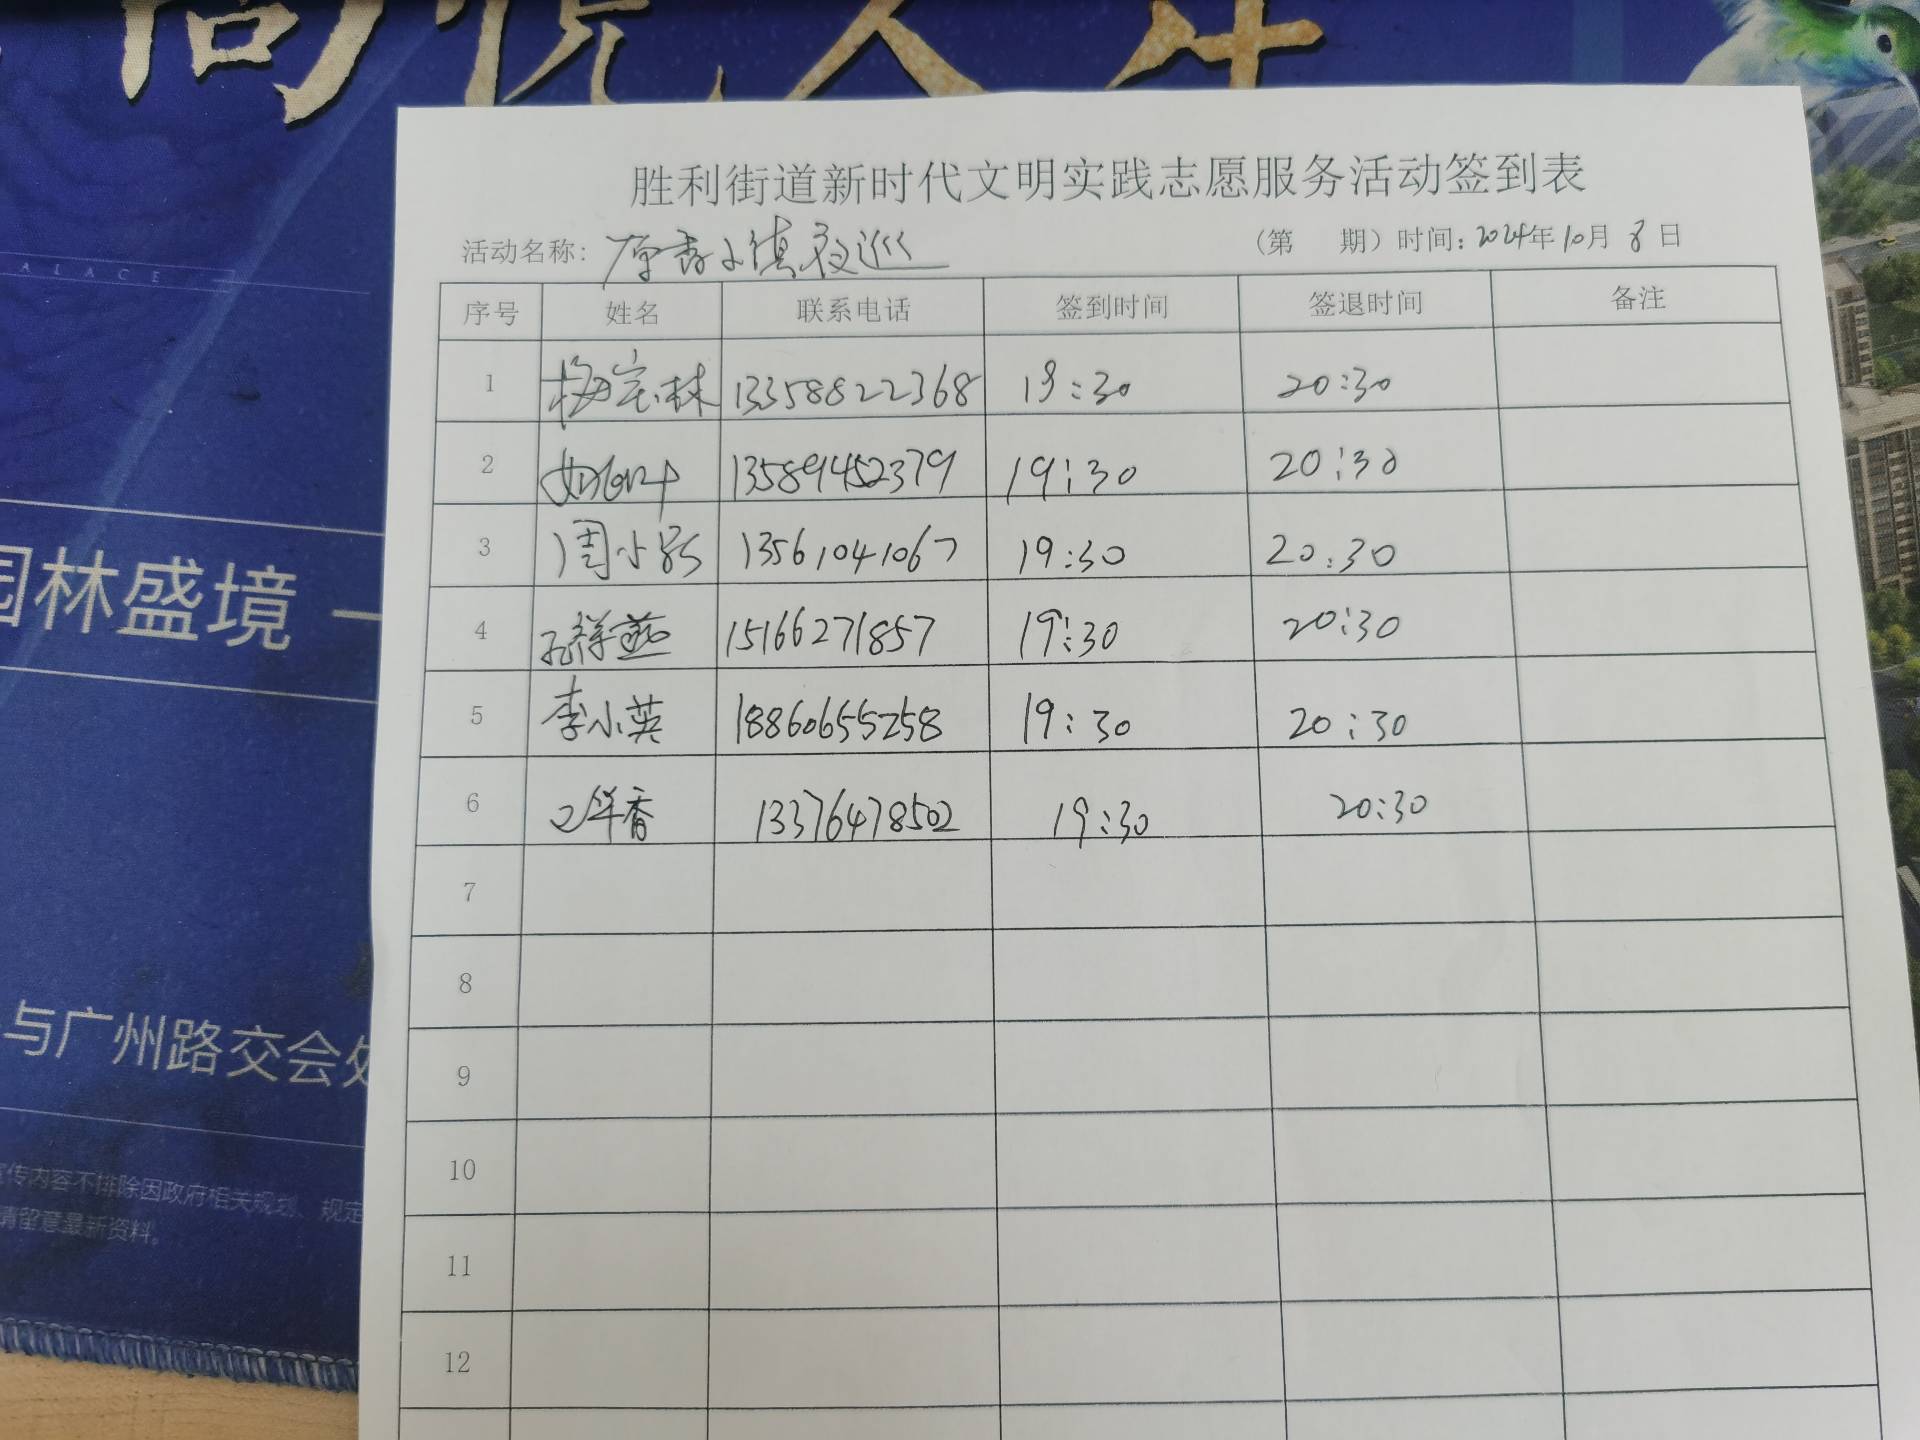 胜利街道新时代文明实践志愿服务活动签到表
活动名称: 原香小镇夜巡 (第 期) 时间: 2024年10月8日
序号 姓名 联系电话 签到时间 签退时间 备注
1 梅宝林 13358822368 19:30 20:30
2 13589452379 19:30 20:30
3 周小 13561041067 19:30 20:30
4 孔祥燕 15166271857 19:30 20:30
5 李小英 18860655258 19:30 20:30
6 13376478502 19:30 20:30
7
8
9
10
11
12
ALACE
园林盛境 一
与广州路交会处
宣传内容不排除因政府相关规划、规定
请留意最新资料。